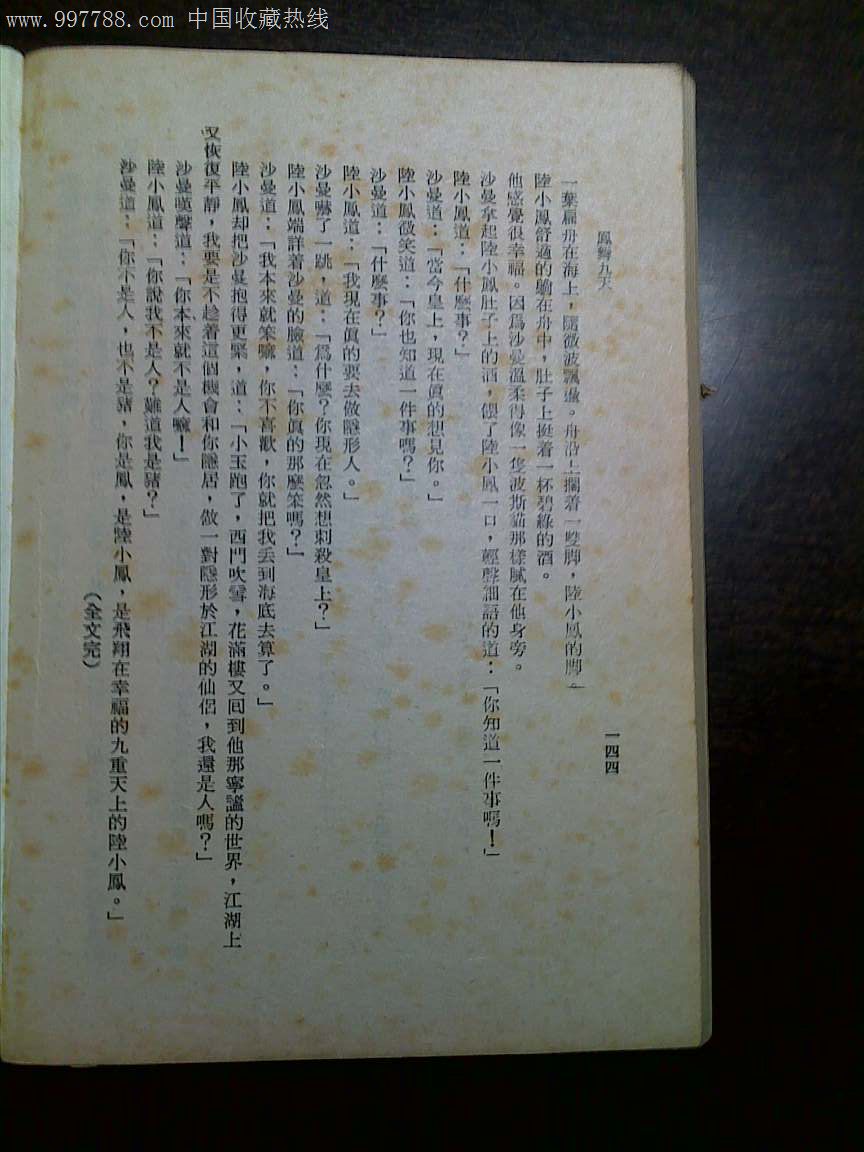 www.997788.com 中国收藏热线
鳳舞九天
一四四
一葉扁舟在海上，隨微波飄盪。舟沿上擱着一雙脚，陸小鳳的脚。
陸小鳳舒適的躺在舟中，肚子上挺着一杯碧綠的酒。
他感覺很幸福。因爲沙曼溫柔得像一隻波斯貓那樣膩在他身旁。
沙曼拿起陸小鳳肚子上的酒，餵了陸小鳳一口，輕聲細語的道：「你知道一件事嗎！」
陸小鳳道：「什麼事？」
沙曼道：「當今皇上，現在眞的想見你。」
陸小鳳微笑道：「你也知道一件事嗎？」
沙曼道：「什麼事？」
陸小鳳道：「我現在眞的要去做隱形人。」
沙曼嚇了一跳，道：「爲什麼？你現在忽然想刺殺皇上？」
陸小鳳端詳着沙曼的臉道：「你眞的那麼笨嗎？」
沙曼道：「我本來就笨嘛，你不喜歡，你就把我丢到海底去算了。」
陸小鳳却把沙曼抱得更緊，道：「小玉跑了，西門吹雪，花滿樓又囘到他那寧謐的世界，江湖上
又恢復平靜，我要是不趁着這個機會和你隱居，做一對隱形於江湖的仙侶，我還是人嗎？」
沙曼嘆聲道：「你本來就不是人嘛！」
陸小鳳道：「你說我不是人？難道我是豬？」
沙曼道：「你不是人，也不是豬，你是鳳，是陸小鳳，是飛翔在幸福的九重天上的陸小鳳。」
（全文完）